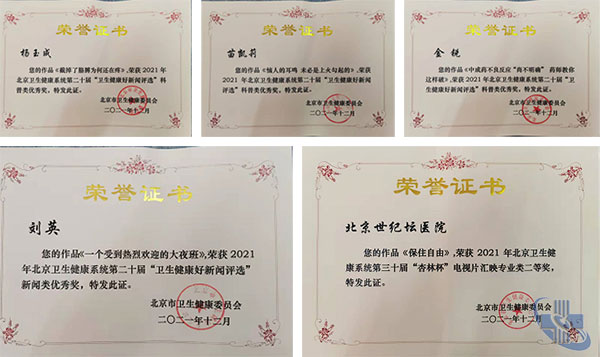 荣誉证书
杨玉成
您的作品《截掉了胳膊为何还在疼》,荣获 2021 年
北京卫生健康系统第二十届“卫生健康好新闻评选”科
普类优秀奖,特发此证。
北京市卫生健康委员会
二〇二一年十二月
荣誉证书
苗凯莉
您的作品《恼人的耳鸣 未必是上火勾起的》,荣获 2021
年北京卫生健康系统第二十届“卫生健康好新闻评选”
科普类优秀奖,特发此证。
北京市卫生健康委员会
二〇二一年十二月
荣誉证书
金锐
您的作品《中成药不良反应“尚不明确” 药师教你
这样破》,荣获 2021 年北京卫生健康系统第二十届“卫
生健康好新闻评选”科普类优秀奖,特发此证。
北京市卫生健康委员会
二〇二一年十二月
荣誉证书
刘英
您的作品《一个受到热烈欢迎的大夜班》,荣获 2021
年北京卫生健康系统第二十届“卫生健康好新闻评选”
新闻类优秀奖,特发此证。
北京市卫生健康委员会
二〇二一年十二月
荣誉证书
北京世纪坛医院
您的作品《保住自由》,荣获 2021 年北京卫生健
康系统第三十届“杏林杯”电视片汇映专业类二等奖,
特发此证。
北京市卫生健康委员会
二〇二一年十二月